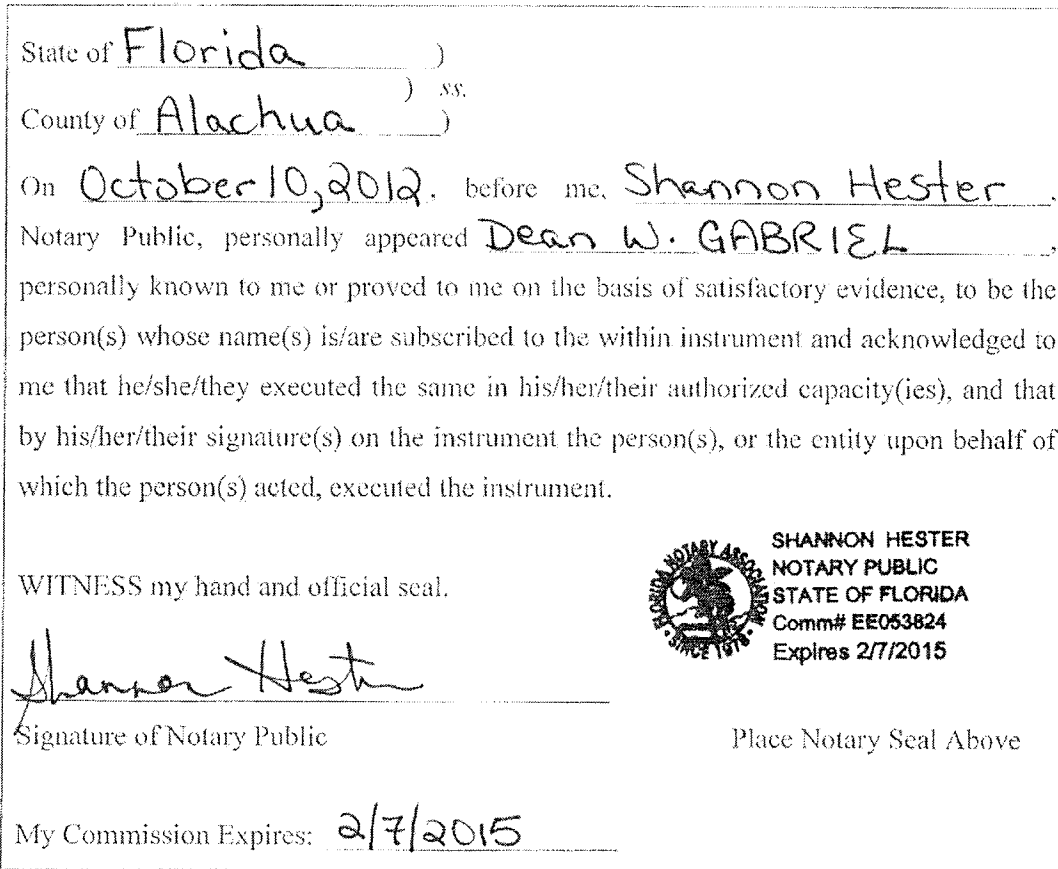 State of Florida )
) ss.
County of Alachua )
On October 10, 2012, before me, Shannon Hester,
Notary Public, personally appeared Dean W. GABRIEL,
personally known to me or proved to me on the basis of satisfactory evidence, to be the
person(s) whose name(s) is/are subscribed to the within instrument and acknowledged to
me that he/she/they executed the same in his/her/their authorized capacity(ies), and that
by his/her/their signature(s) on the instrument the person(s), or the entity upon behalf of
which the person(s) acted, executed the instrument.
WITNESS my hand and official seal.
FLORIDA NOTARY ASSOCIATION
SINCE 1978
SHANNON HESTER
NOTARY PUBLIC
STATE OF FLORIDA
Comm# EE053824
Expires 2/7/2015
Shannon Hester
Signature of Notary Public
Place Notary Seal Above
My Commission Expires: 2/7/2015